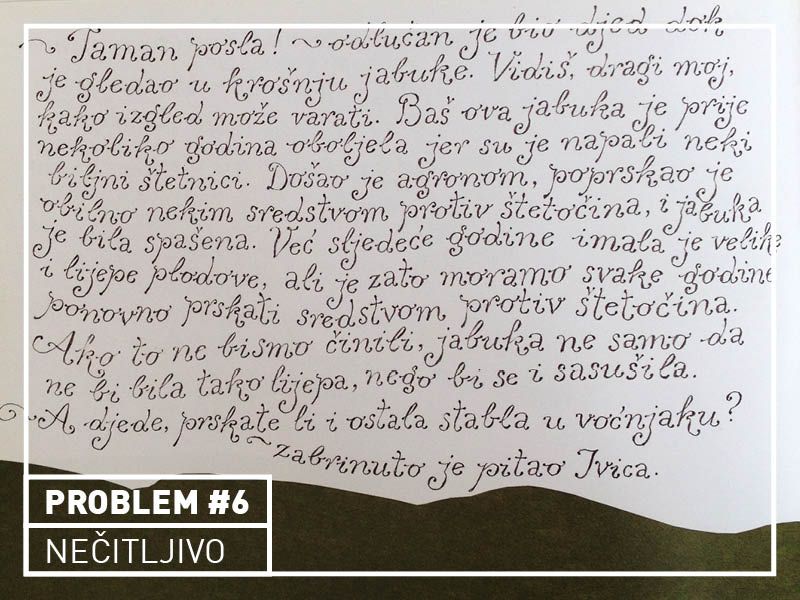 ~ Taman posla! ~ odlučan je bio djed dok
je gledao u krošnju jabuke. Vidiš, dragi moj,
kako izgled može varati. Baš ova jabuka je prije
nekoliko godina oboljela jer su je napali neki
biljni štetnici. Došao je agronom, poprskao je
obilno nekim sredstvom protiv štetočina, i jabuka
je bila spašena. Već sljedeće godine imala je velike
i lijepe plodove, ali je zato moramo svake godine
ponovno prskati sredstvom protiv štetočina.
Ako to ne bismo činili, jabuka ne samo da
ne bi bila tako lijepa, nego bi se i sasušila.
~ A djede, prskate li i ostala stabla u voćnjaku?
~ zabrinuto je pitao Ivica.
PROBLEM #6
NEČITLJIVO